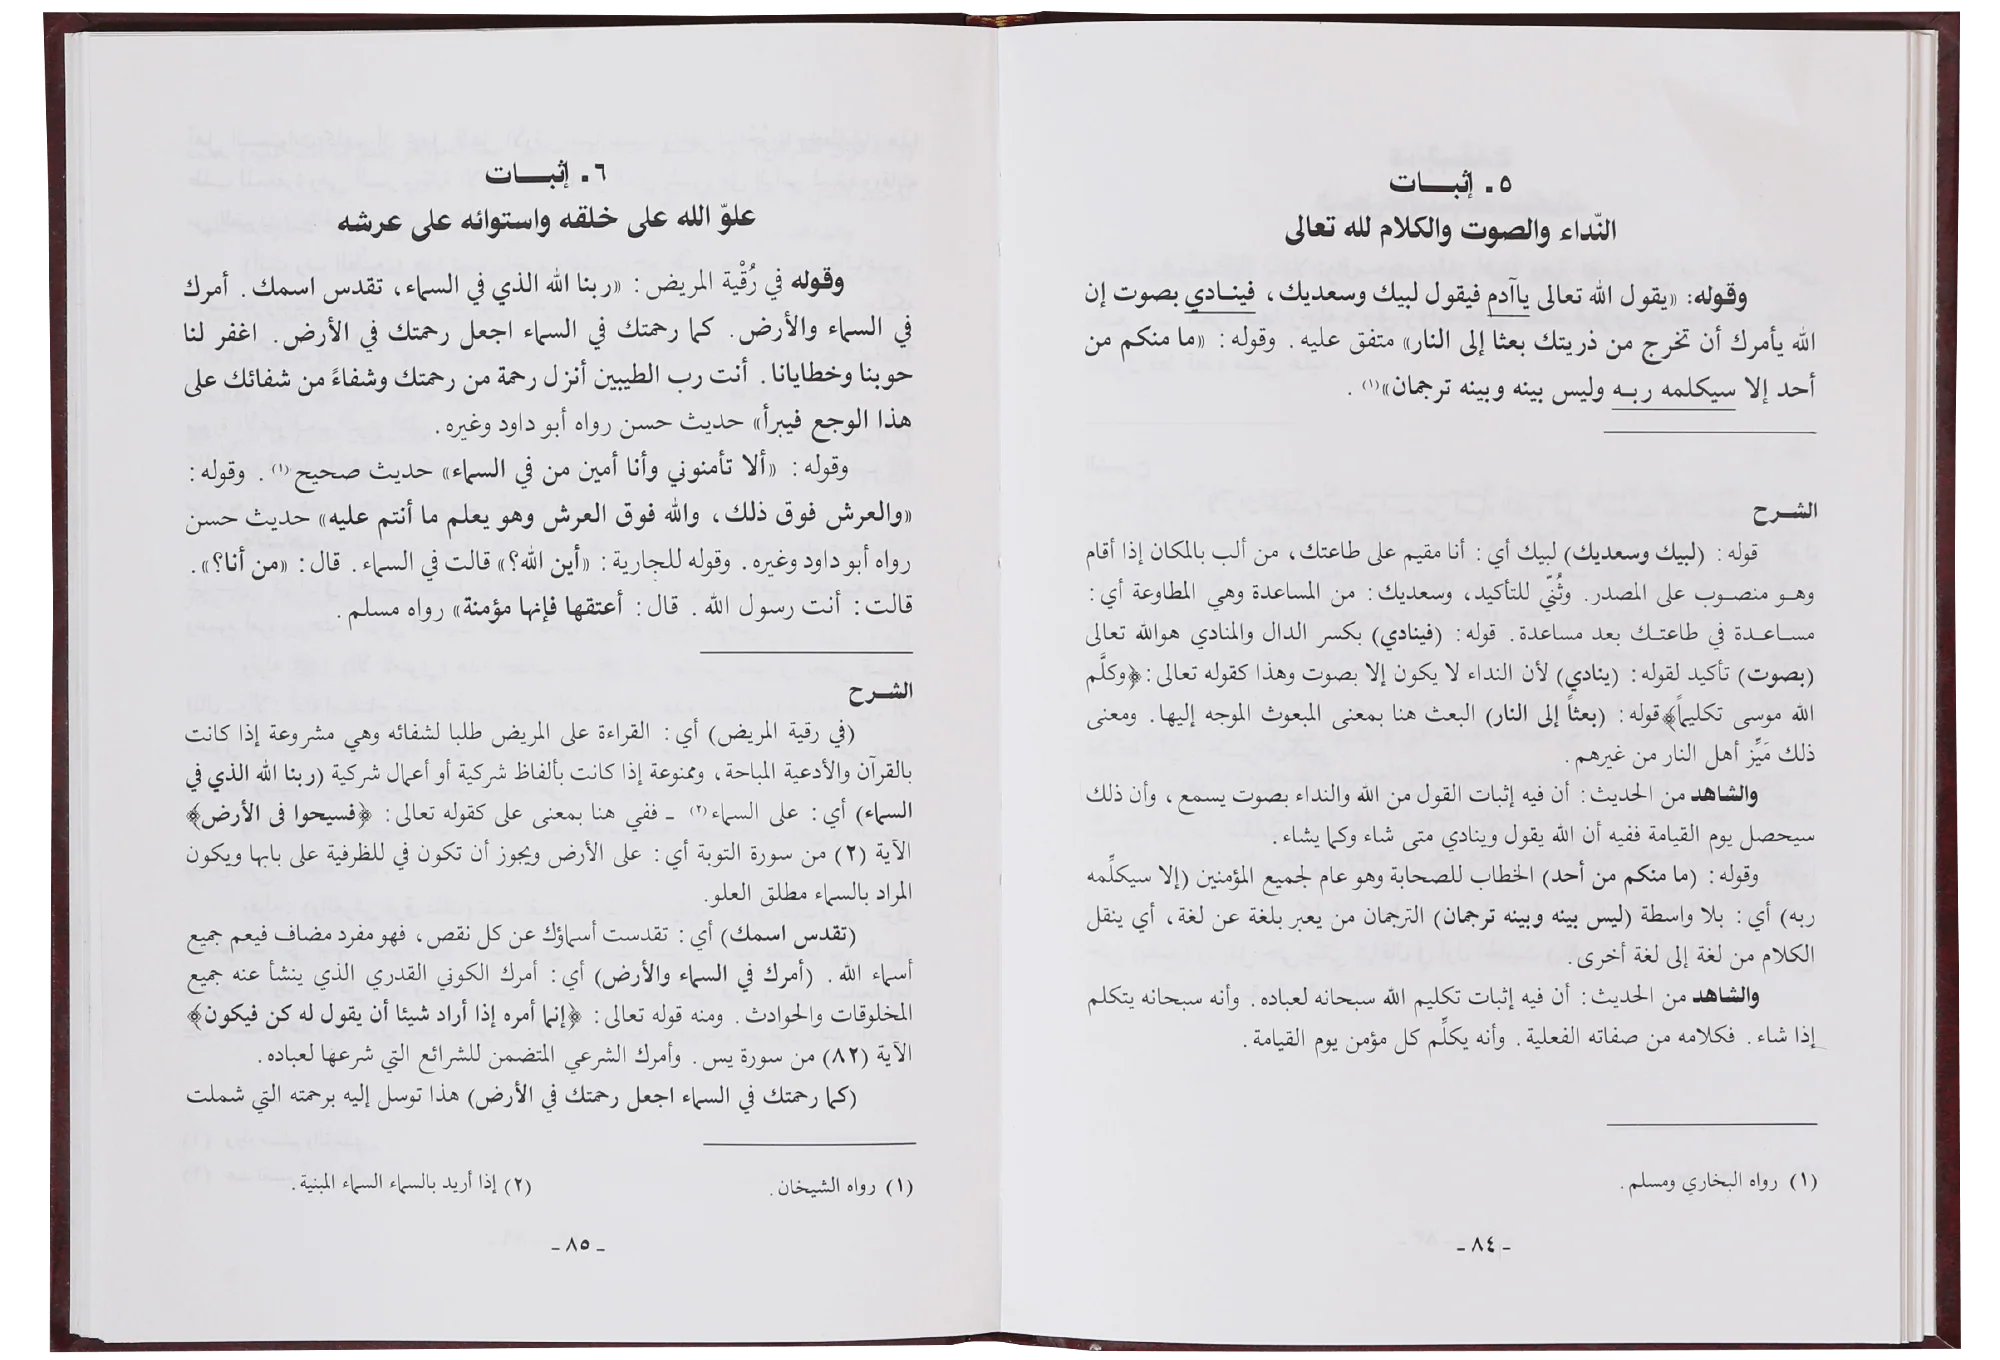 ٥ ـ إثبـــات
النّداء والصوت والكلام لله تعالى
وقوله: «يقول الله تعالى ياآدم فيقول لبيك وسعديك، فينـادي بصوت إن
الله يأمرك أن تخرج من ذريتك بعثا إلى النار» متفق عليه. وقوله: «ما منكم من
أحد إلا سيكلمه ربـه وليس بينه وبينه ترجمان»(١).
الشـرح
قوله: (لبيك وسعديك) لبيك أي: أنا مقيم على طاعتك، من ألب بالمكان إذا أقام
وهـو منصوب على المصدر. وثُنّي للتأكيد، وسعديك: من المساعدة وهي المطاوعة أي:
مسـاعـدة في طاعتـك بعد مساعدة. قوله: (فينادي) بكسر الدال والمنادي هوالله تعالى
(بصوت) تأكيد لقوله: (ينادي) لأن النداء لا يكون إلا بصوت وهذا كقوله تعالى: ﴿وكلَّم
الله موسى تكليماً﴾ قوله: (بعثاً إلى النار) البعث هنا بمعنى المبعوث الموجه إليها. ومعنى
ذلك مَيِّز أهل النار من غيرهم.
والشاهد من الحديث: أن فيه إثبات القول من الله والنداء بصوت يسمع، وأن ذلك
سيحصل يوم القيامة ففيه أن الله يقول وينادي متى شاء وكما يشاء.
وقوله: (ما منكم من أحد) الخطاب للصحابة وهو عام لجميع المؤمنين (إلا سيكلِّمه
ربه) أي: بلا واسطة (ليس بينه وبينه ترجمان) الترجمان من يعبر بلغة عن لغة، أي ينقل
الكلام من لغة إلى لغة أخرى.
والشاهد من الحديث: أن فيه إثبات تكليم الله سبحانه لعباده. وأنه سبحانه يتكلم
إذا شاء. فكلامه من صفاته الفعلية. وأنه يكلِّم كل مؤمن يوم القيامة.
(١) رواه البخاري ومسلم.
ـ ٨٤ ـ
٦ ـ إثبـــات
علوّ الله على خلقه واستوائه على عرشه
وقوله في رُقْية المريض: «ربنا الله الذي في السماء، تقدس اسمك. أمرك
في السماء والأرض. كما رحمتك في السماء اجعل رحمتك في الأرض. اغفر لنا
حوبنا وخطايانا. أنت رب الطيبين أنزل رحمة من رحمتك وشفاءً من شفائك على
هذا الوجع فيبرأ» حديث حسن رواه أبو داود وغيره.
وقوله: «ألا تأمنوني وأنا أمين من في السماء» حديث صحيح(١). وقوله:
«والعرش فوق ذلك، والله فوق العرش وهو يعلم ما أنتم عليه» حديث حسن
رواه أبو داود وغيره. وقوله للجارية: «أين الله؟» قالت في السماء. قال: «من أنا؟».
قالت: أنت رسول الله. قال: أعتقها فإنها مؤمنة» رواه مسلم.
الشـرح
(في رقية المريض) أي: القراءة على المريض طلبا لشفائه وهي مشروعة إذا كانت
بالقرآن والأدعية المباحة، وممنوعة إذا كانت بألفاظ شركية أو أعمال شركية (ربنا الله الذي في
السماء) أي: على السماء(٢) ـ ففي هنا بمعنى على كقوله تعالى: ﴿فسيحوا فى الأرض﴾
الآية (٢) من سورة التوبة أي: على الأرض ويجوز أن تكون في للظرفية على بابها ويكون
المراد بالسماء مطلق العلو.
(تقدس اسمك) أي: تقدست أسماؤك عن كل نقص، فهو مفرد مضاف فيعم جميع
أسماء الله. (أمرك في السماء والأرض) أي: أمرك الكوني القدري الذي ينشأ عنه جميع
المخلوقات والحوادث. ومنه قوله تعالى: ﴿إنما أمره إذا أراد شيئا أن يقول له كن فيكون﴾
الآية (٨٢) من سورة يس. وأمرك الشرعي المتضمن للشرائع التي شرعها لعباده.
(كما رحمتك في السماء اجعل رحمتك في الأرض) هذا توسل إليه برحمته التي شملت
(١) رواه الشيخان. (٢) إذا أريد بالسماء السماء المبنية.
ـ ٨٥ ـ